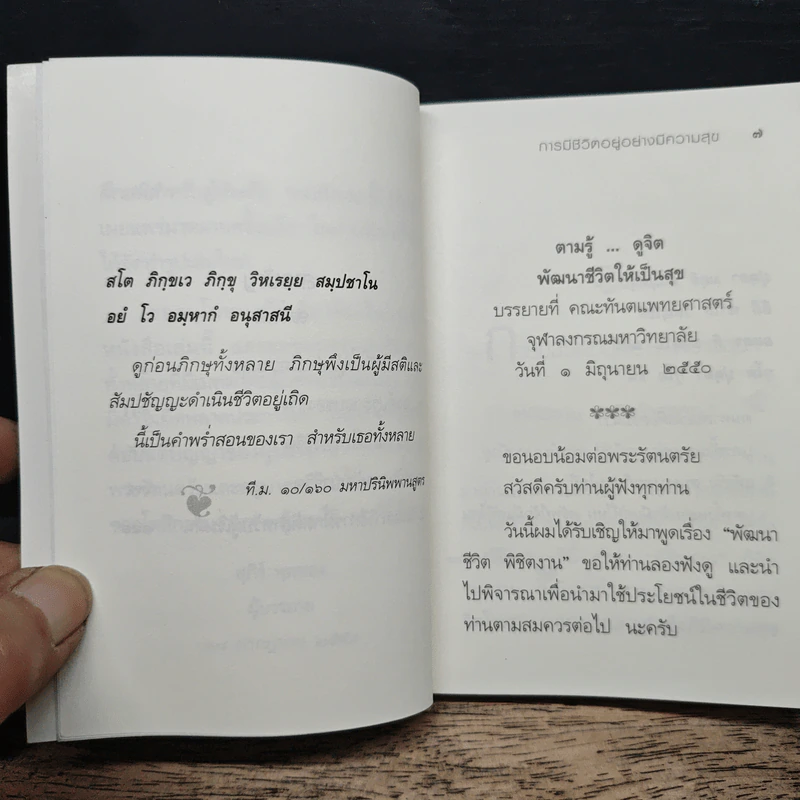 สโต ภิกฺขเว ภิกฺขุ วิหเรยฺย สมฺปชาโน
อยํ โว อมฺหากํ อนุสาสนี
ดูก่อนภิกษุทั้งหลาย ภิกษุพึงเป็นผู้มีสติและ
สัมปชัญญะดำเนินชีวิตอยู่เถิด
นี้เป็นคำพร่ำสอนของเรา สำหรับเธอทั้งหลาย
ที.ม. ๑๐/๑๖๐ มหาปรินิพพานสูตร
การมีชีวิตอยู่อย่างมีความสุข ๗
ตามรู้ ... ดูจิต
พัฒนาชีวิตให้เป็นสุข
บรรยายที่ คณะทันตแพทยศาสตร์
จุฬาลงกรณมหาวิทยาลัย
วันที่ ๑ มิถุนายน ๒๕๕๐
ขอนอบน้อมต่อพระรัตนตรัย
สวัสดีครับท่านผู้ฟังทุกท่าน
วันนี้ผมได้รับเชิญให้มาพูดเรื่อง “พัฒนา
ชีวิต พิชิตงาน” ขอให้ท่านลองฟังดู และนำ
ไปพิจารณาเพื่อนำมาใช้ประโยชน์ในชีวิตของ
ท่านตามสมควรต่อไป นะครับ